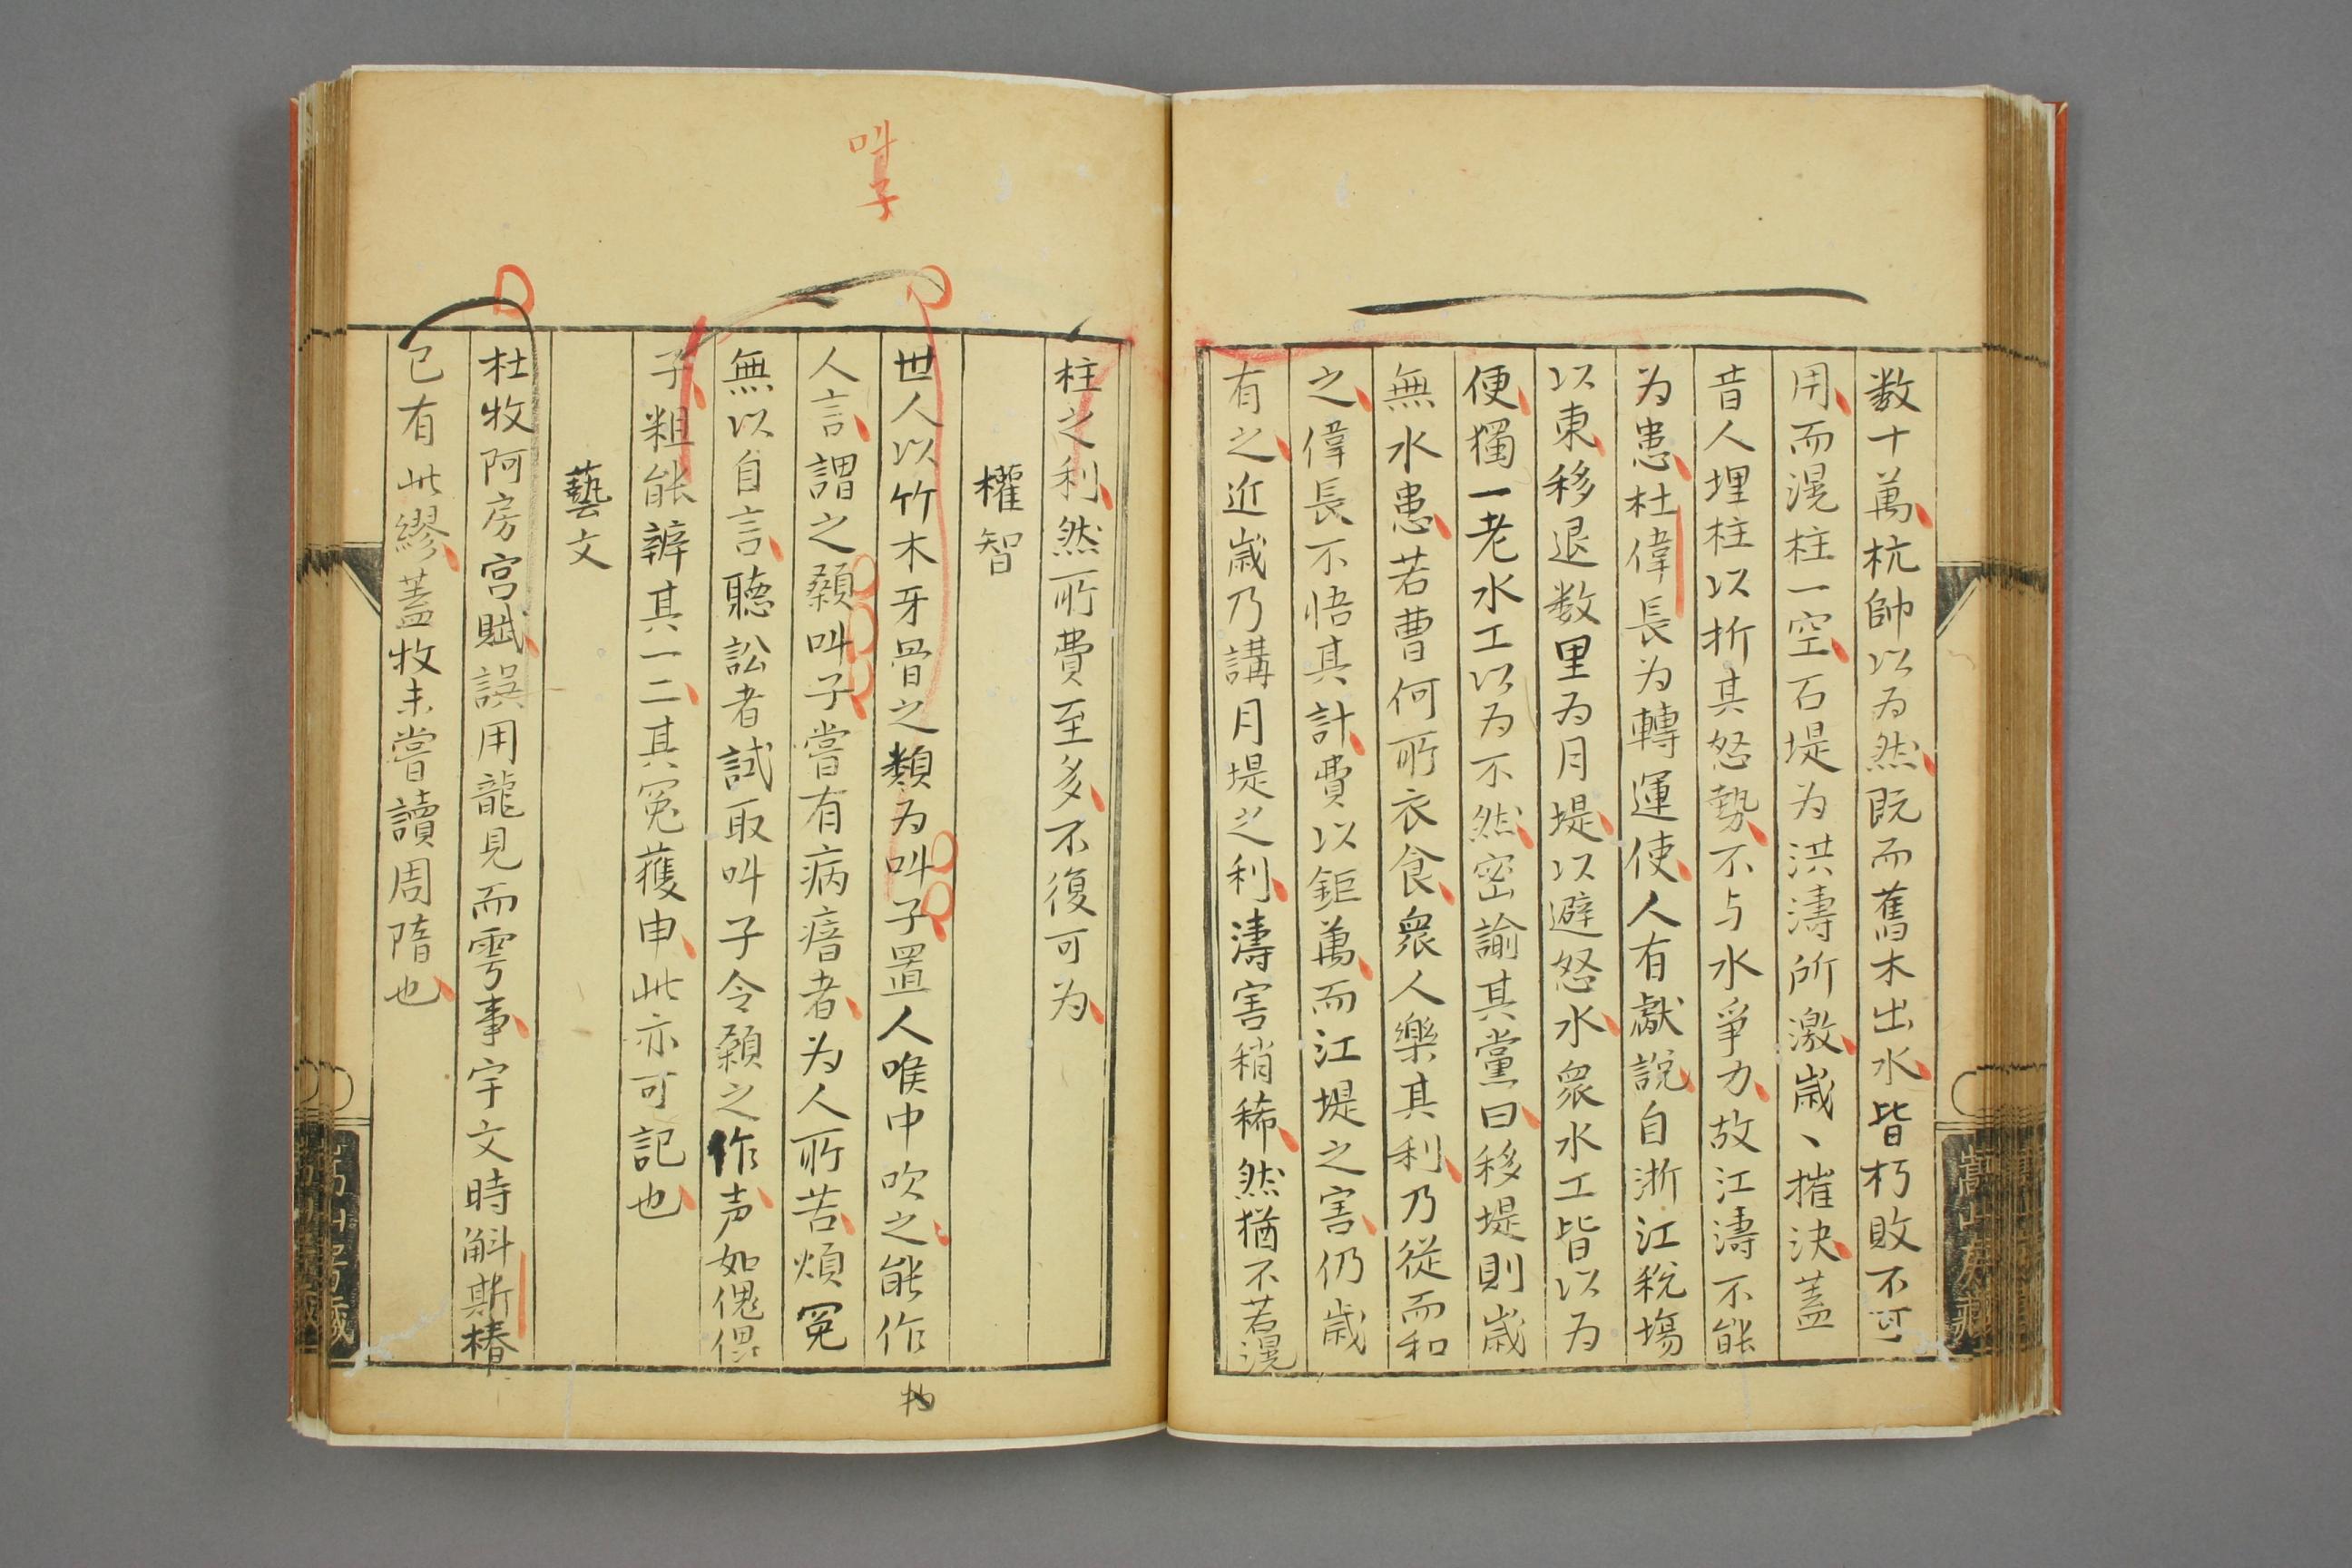 数十萬杭帥以为然既而舊木出水皆朽敗不可
用而滉柱一空石堤为洪濤所激歳丶摧決蓋
昔人埋柱以折其怒勢不与水爭力故江濤不能
为患杜偉長为轉運使人有獻說自浙江税場
以東移退数里为月堤以避怒水衆水工皆以为
便獨一老水工以为不然密諭其黨曰移堤則歳
無水患若曹何所衣食衆人樂其利乃從而和
之偉長不悟其計費以鉅萬而江堤之害仍歳
有之近歳乃講月堤之利濤害稍稀然猶不若滉
叫子
柱之利然所費至多不復可为
權智
世人以竹木牙骨之類为叫子置人喉中吹之能作
人言謂之顙叫子嘗有病瘖者为人所苦煩冤
無以自言聽訟者試取叫子令顙之作声如傀儡
子粗能辨其一二其冤獲申此亦可記也
藝文
杜牧阿房宮賦誤用龍見而雩事宇文時斛斯椿
已有此繆蓋牧未嘗讀周隋也